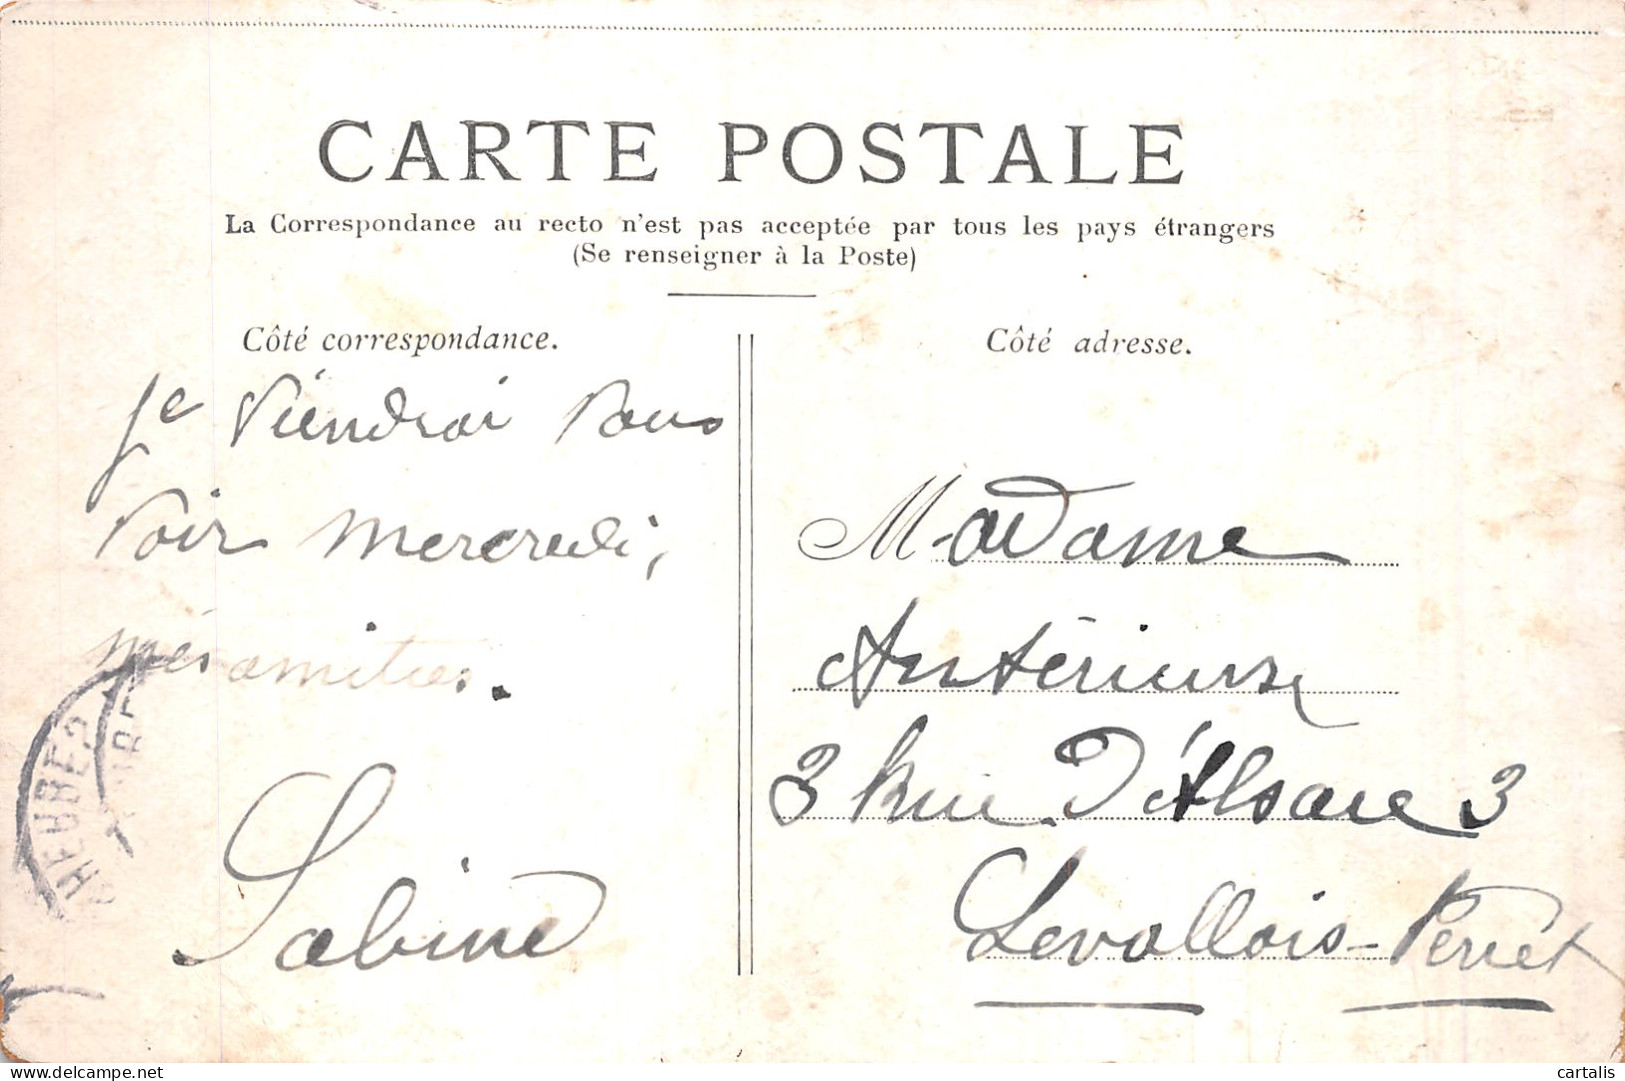 CARTE POSTALE
La Correspondance au recto n'est pas acceptée par tous les pays étrangers
(Se renseigner à la Poste)
Côté correspondance.
Je Viendrai Vous
Voir mercredi,
mes amitiés.
Sabine
Côté adresse.
Madame
3 Rue D'Alsace 3
Levallois-Perret
delcampe.net
cartalis